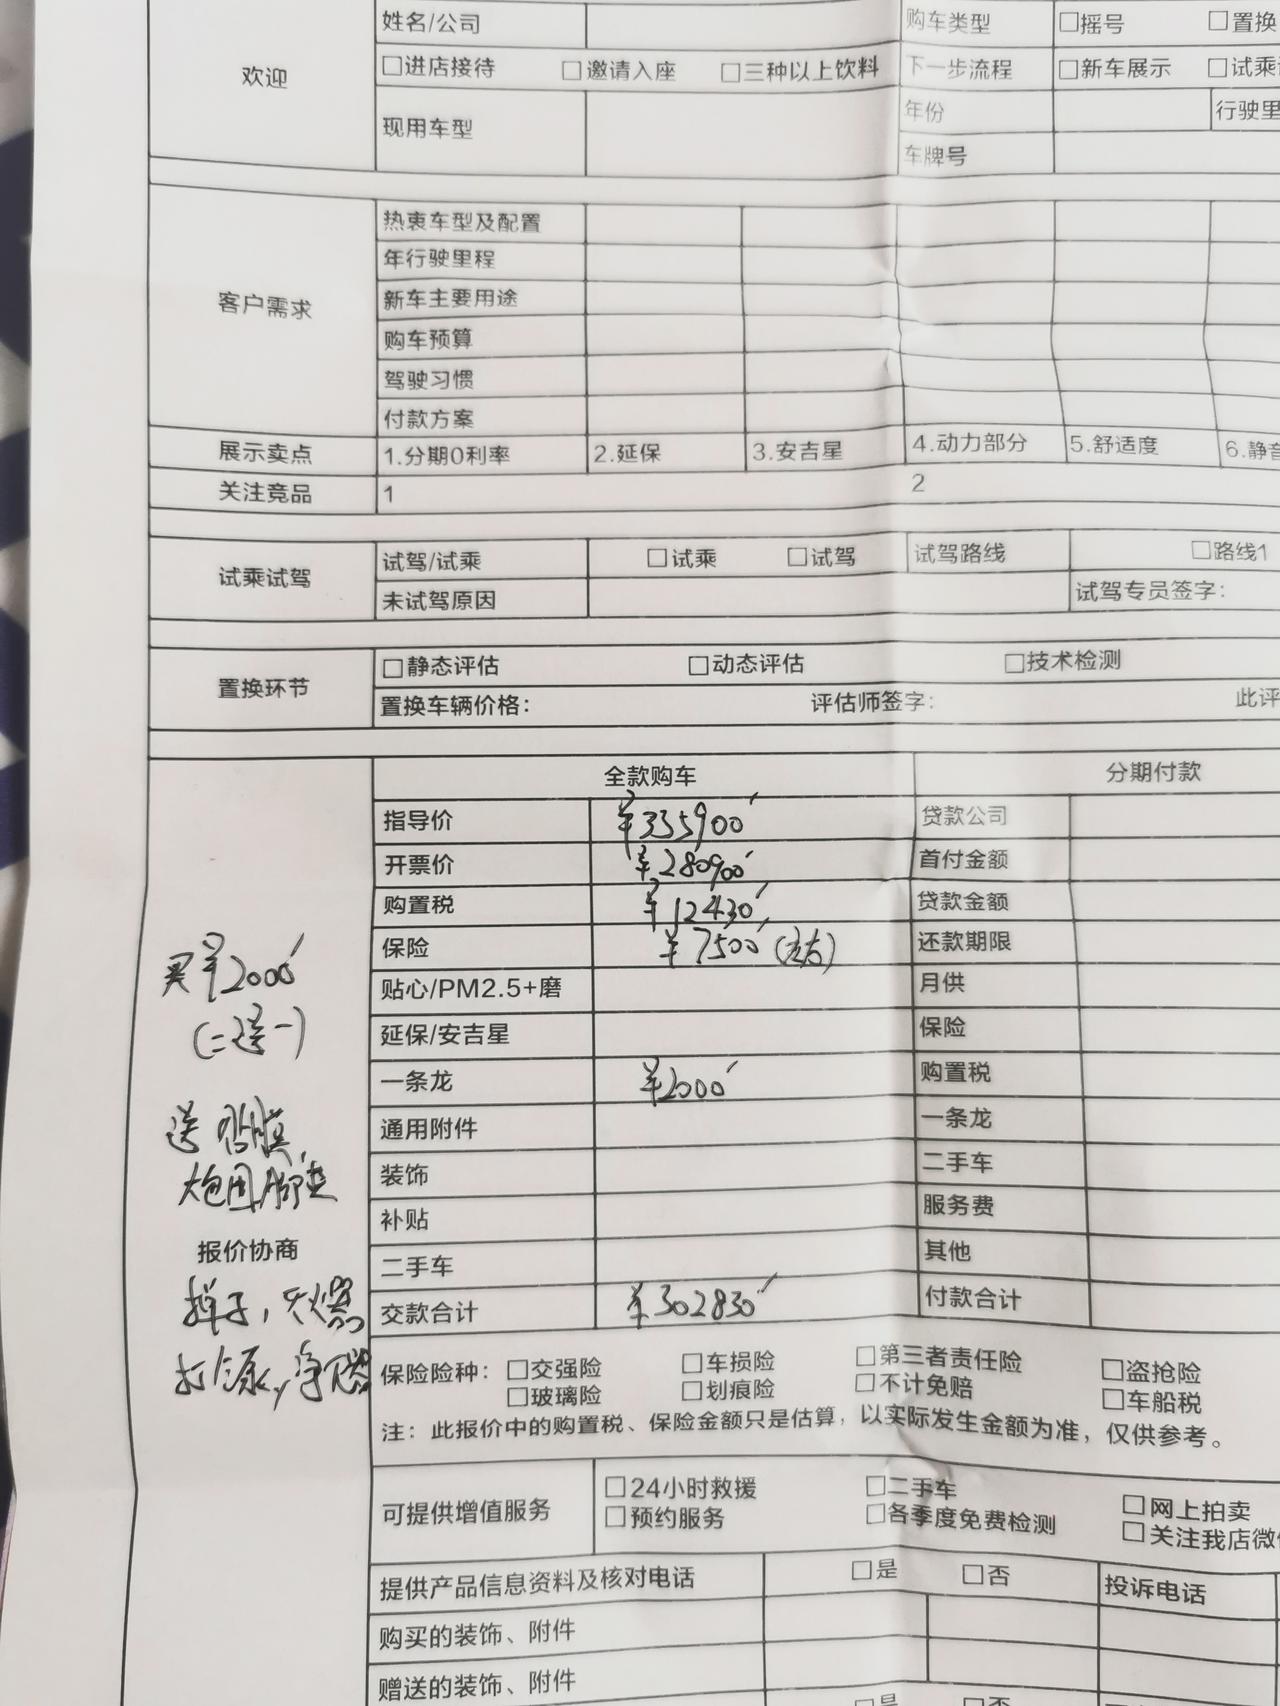 姓名/公司 购车类型 □摇号 □置换
欢迎 □进店接待 □邀请入座 □三种以上饮料 下一步流程 □新车展示 □试乘
现用车型 年份 行驶里
车牌号
客户需求
热衷车型及配置
年行驶里程
新车主要用途
购车预算
驾驶习惯
付款方案
展示卖点 1.分期0利率 2.延保 3.安吉星 4.动力部分 5.舒适度 6.静音
关注竞品 1 2
试乘试驾 试驾/试乘 □试乘 □试驾 试驾路线 □路线1
未试驾原因 试驾专员签字:
置换环节 □静态评估 □动态评估 □技术检测
置换车辆价格: 评估师签字: 此评
全款购车 分期付款
指导价 ¥335900 贷款公司
开票价 ¥280900 首付金额
购置税 ¥12430 贷款金额
保险 ¥7500(左右) 还款期限
贴心/PM2.5+磨 月供
延保/安吉星 保险
一条龙 ¥2000 购置税
通用附件 一条龙
装饰 二手车
补贴 服务费
二手车 其他
交款合计 ¥302830 付款合计
买¥2000
(二送一)
送 贴膜,
大包围脚垫
报价协商
掸子,灭火器
保险险种: □交强险 □车损险 □第三者责任险 □盗抢险
□玻璃险 □划痕险 □不计免赔 □车船税
注: 此报价中的购置税、保险金额只是估算，以实际发生金额为准，仅供参考。
可提供增值服务 □24小时救援 □二手车 □网上拍卖
□预约服务 □各季度免费检测 □关注我店微信
提供产品信息资料及核对电话 □是 □否 投诉电话
购买的装饰、附件
赠送的装饰、附件 □是 □否